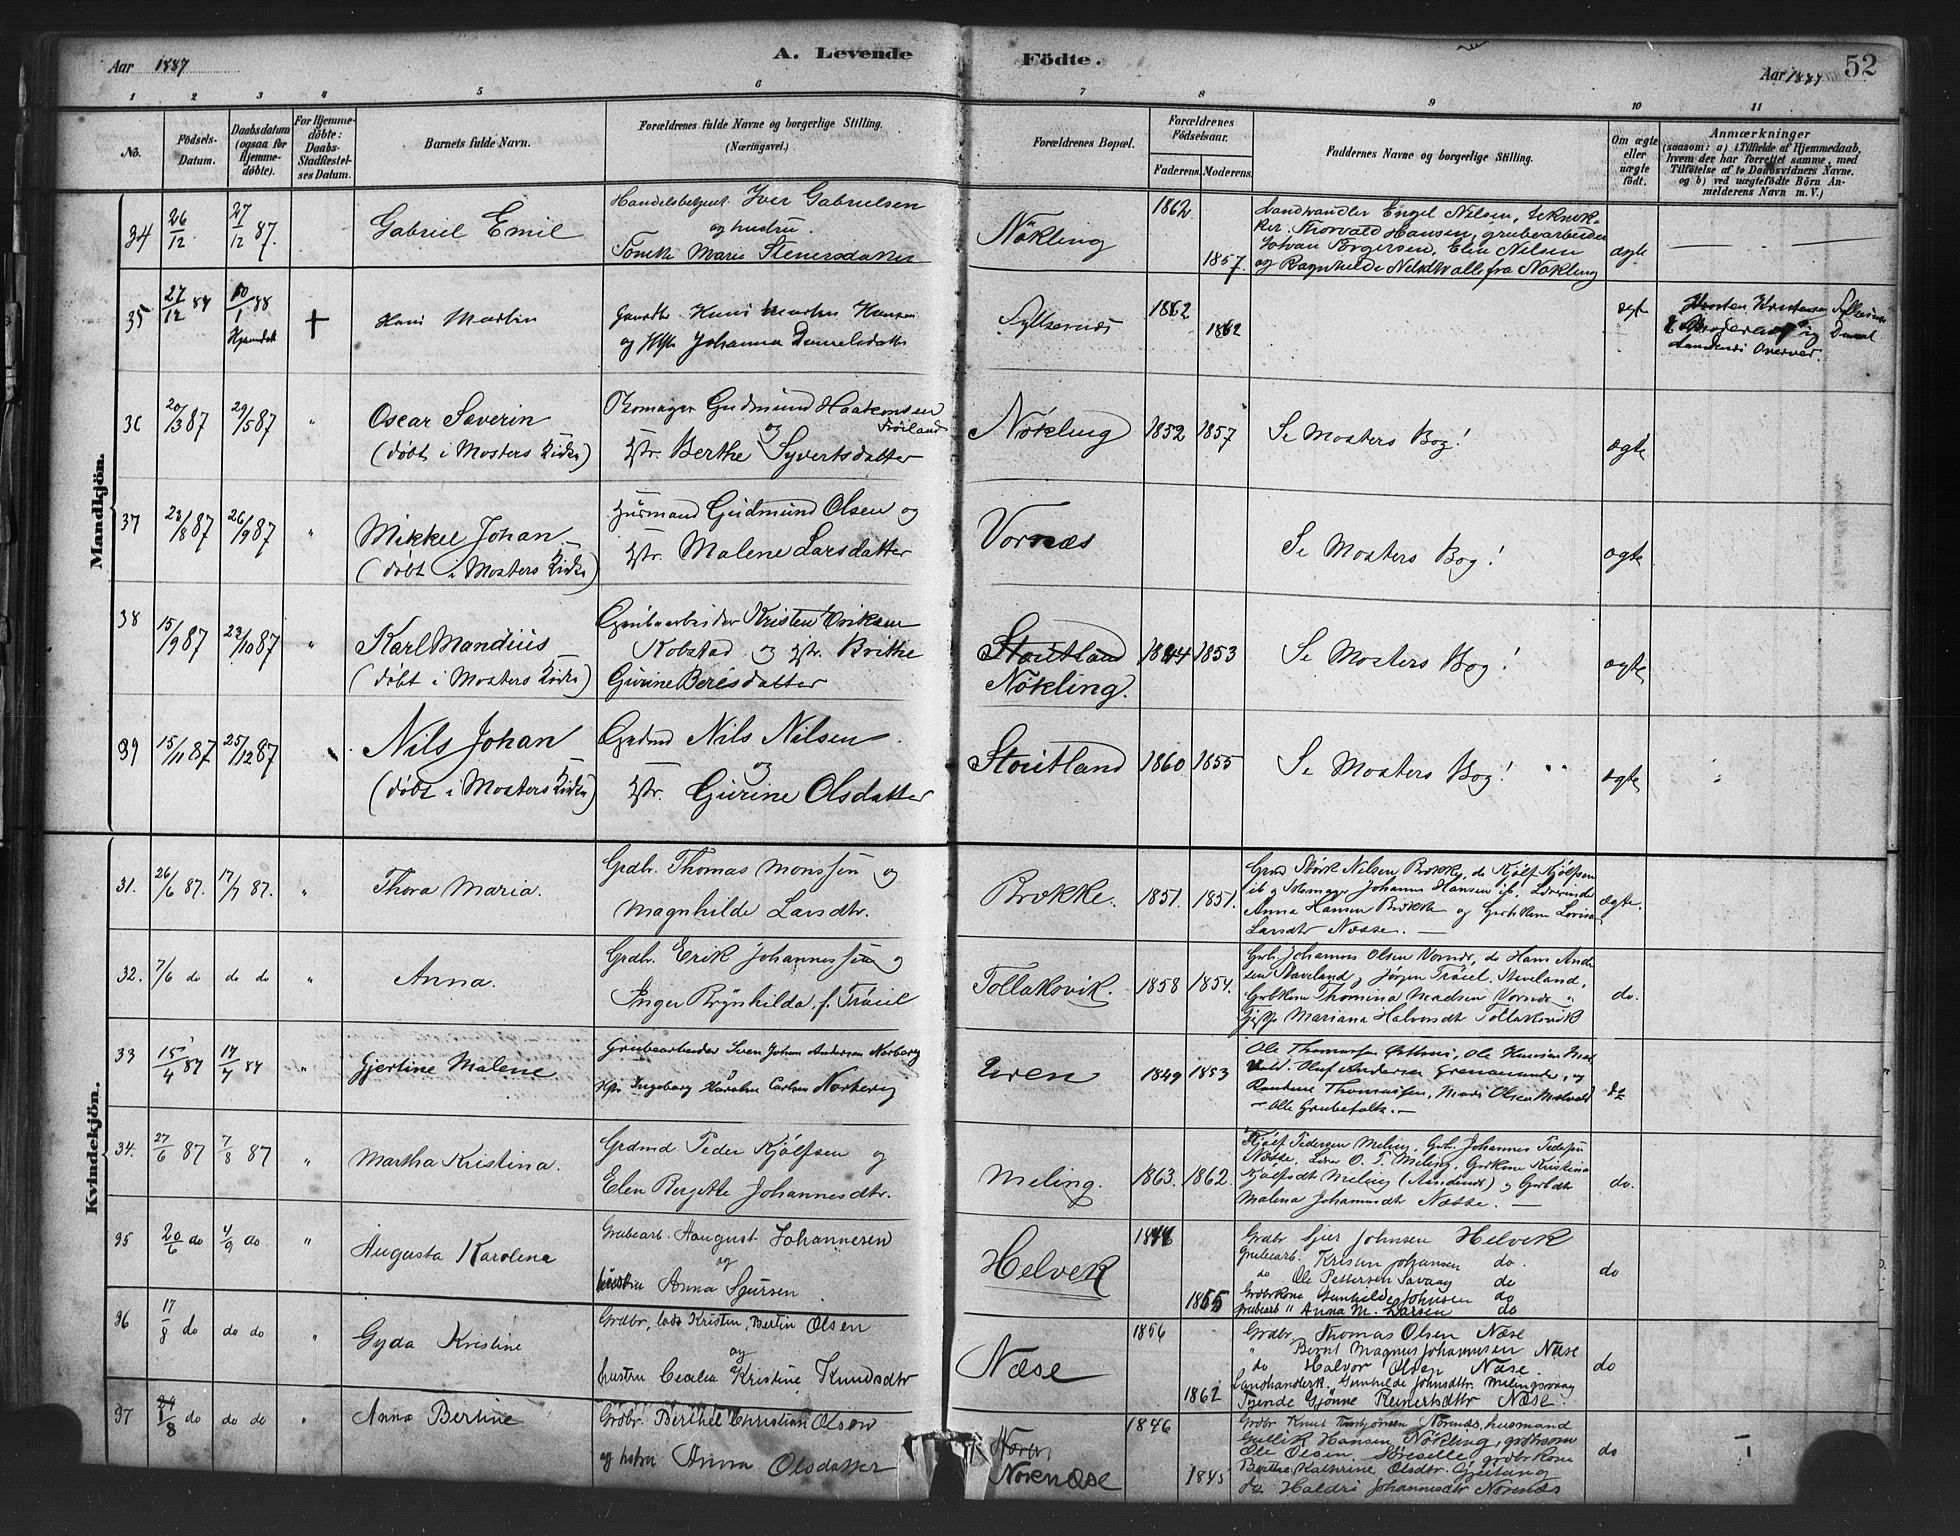 Aar 1887
A. Levende
Födte.
Aar 1887
52
1 2 3 4 5 6 7 8 9 10 11
No.
Födsels-
Datum.
Daabsdatum
(ogsaa for
Hjemme-
døbte).
For Hjemme-
døbte:
Daabs-
Stadfæstel-
ses Datum.
Barnets fulde Navn.
Forældrenes fulde Navne og borgerlige Stilling.
(Næringsvei.)
Forældrenes Bopæl.
Forældrenes
Födselsaar.
Faderens. Moderens.
Faddernes Navne og borgerlige Stilling.
Om ægte
eller
uægte
født.
Anmærkninger
(saasom: a) i Tilfælde af Hjemmedaab,
hvem der har forrettet samme, med
Tilföielse af to Daabsvidners Navne,
og b) ved uægtefödte Börn An-
melderens Navn m. V.)
Mandkjön.
34 26/12 27/12 87. Gabriel Emil
Handelsbetjent Iver Gabrielsen
og hustru.
Marie Stenersdatter
Nökling
1862
1857.
Landhandler Engel Nilsen,
Thorvald Hansen, grubearbeider
Borgersen, Elen Nilsen
og Ragnhilde fra Nökling
ægte
35 27/12 87 10/1 88
Hjemdøbt
+
Hans Martin
Hans Martin Hansen
og Johanna
1862
1862
ægte
36 20/3 87 29/5 87 "
Oscar Severin
(døbt i Mosters Kirke)
Gudmund Haakonsen
og Fröiland
Hstr. Berthe Syvertsdatter
Nökling
1852 1857
Se Mosters Bog!
ægte
37 23/8 87 26/9 87 "
Mikkel Johan
(døbt i Mosters Kirke)
Husmand Gudmund Olsen og
Hstr. Malene Larsdatter
Vornæs
Se Mosters Bog!
ægte
38 15/9 87 23/10 87 "
Karl Mandius
(døbt i Mosters Kirke)
Grubearbeider Kristen Eriksen
Kobstad og Hstr. Brithe
Gurine Beresdatter
Stoutland
Nökling.
1844 1853
Se Mosters Bog!
ægte
39 15/11 87 25/12 87
Nils Johan
(døbt i Mosters Kirke)
Grdmd Nils Nilsen
og
Hstr. Gurine Olsdatter
Stoutland
1860 1855
Se Mosters Bog!
ægte
Kvindekjön.
31. 26/6 87. 17/7 87. "
Thora Maria.
Grdb. Thomas Monssen og
Magnhilde Larsdtr.
Brokke.
1851. 1851.
Grmd Størk Nilsen Brokke, do Kjølf Kjølfsen
ib og Johannes Hansen ib.
Anna Hansen Brokke og
Larsdtr Næsse. —
ægte.
32. 7/6 do do do "
Anna.
Grdb. Erik Johannessen og
Inger Brynhilda f. Tröiel
Tollaksvik.
1858 1854.
Grb. Johannes Olsen Vornæs, do Hans Ande
sen Staveland og Jørgen Tröiel,
Thomina Madsen Vornæs
Mariana Halvorsdt Tollaksvik
do.
33 15/4 87 17/7 87 "
Gjertine Malene
Grubearbeider Sven Johan Andersen Norberg
Ingeborg Carlsen Norberg
Uren
1849 1853
Ole Thomassen
Oluf Andersen og
Thomassen,
— Alle Grubefolk. —
do
34. 27/6 87 7/8 87 "
Martha Kristina.
Grdmd Peder Kjölfsen og
Elen Bergitte Johannesdtr.
Meling.
1863. 1862.
Kjölf Pedersen Meling, Grb. Johannes Pedersen
Næsse, O. T. Meling, Grbkone Kristina
Kjölfsdt Meling og Grbdt
Malena Johannesdt Næsse. —
do.
35 20/6 do 4/9 do "
Augusta Karolena
Grubearb. Haugust Johannesen
og
hustru Anna Sjursen
Helvek
1844
1855
Grdbr Sjur Johnsen Helvik
Grubearb. Kristen Johansen do.
do Ole Pettersen Savaag do
Grdbrkone Gunhilde Johnsen do
Grubearb " Anna M. Larsen do
do
36 17/8 do do do "
Gyda Kristine
Grdbr, Kristen, Bertin Olsen
og
hustru Cecilia Kristine, Knudsdtr
Næse
1856
1862
Grdbr. Thomas Olsen Næse
" Bernt Magnus Johannesen Næse
do Halvor Olsen Næse.
Landhandlerk. Gunhilde Johnsdtr. Melingsvaag
Tjende Gjönne Reinertsdtr Næse.
do
37 1/8 do do do "
Anna Bertine
Grdbr. Berthel Christian Olsen
og hstru Anna Olsdatter
Nornæse
1846
1845
Grdbr Knut Nornæs, husmand
Gullik Hansen Nökling,
Ole Olsen grdbrkone
Berthe Kathrine Olsdtr. og
do Johannesdtr Nornæs
do